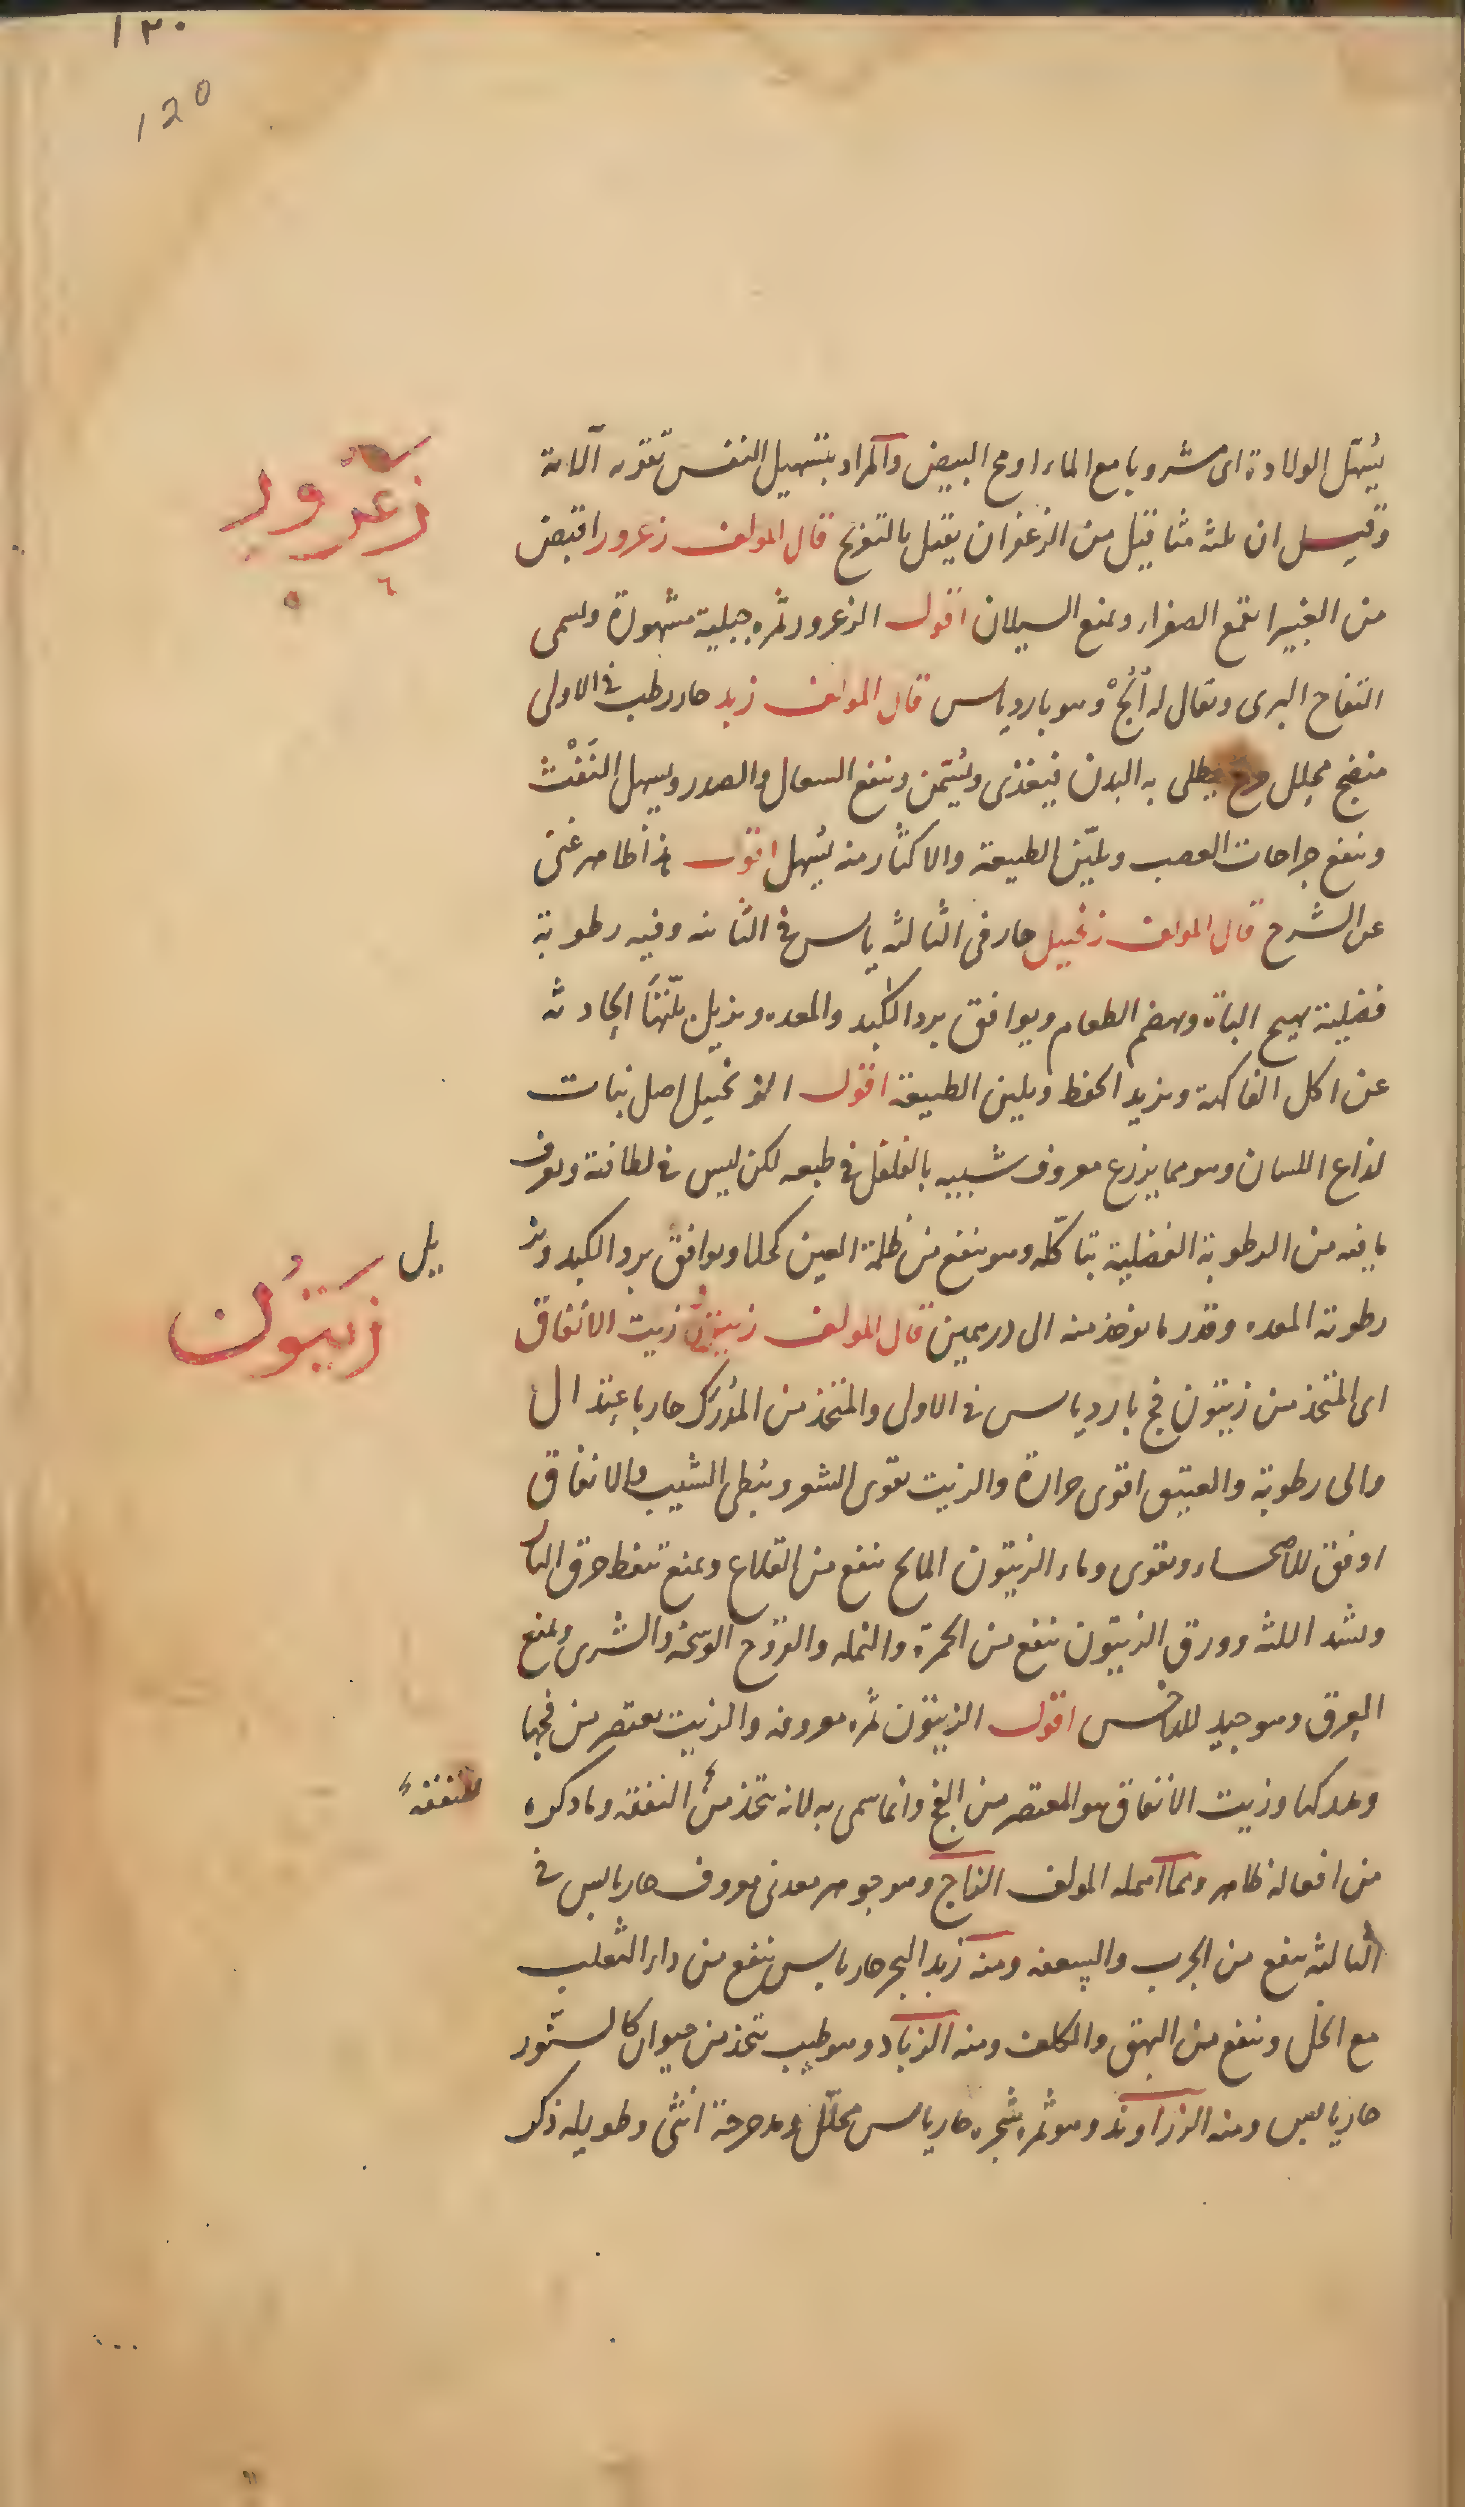 ١٢٠
120
يُسهّل الولادة اى مشروبا مع الماء او مح البيض والمراد بتسهيل النفس تقويه آلاته
وقيل ان ثلثه مثاقيل من الزعفران يقتل بالتفريح قال المولف زعرور اقبض
من الغبيرا يقمع الصفراء ويمنع السيلان اقول الزعرور ثمره جبلية مشهورة ويسمى
التفاح البرى ويقال له وهو بارد يابس قال المولف زبد حار رطب فى الاولى
منضج محلل مرخ يطلى به البدن فيغذى ويُسمّن وينفع السعال والصدر ويسهل النَفْث
وينفع جراحات العصب ويليّن الطبيعة والاكثار منه يُسهل اقول هذا ظاهر غنى
عن الشرح قال المولف زنجبيل حار فى الثالثه يابس فى الثانيه وفيه رطوبة
فضلية يهيج الباة ويهضم الطعام ويوافق برد الكبد والمعده ويزيل بلّتها الحادثه
عن اكل الفاكهة ويزيد الحفظ ويلين الطبيعة اقول الزنجبيل اصل نبات
لذاع اللسان وهو مما يزرع معروف شبيه بالفلفل فى طبعه لكن ليس فى لطافته ويعرف
ما فيه من الرطوبة الفضلية بتاكّله وهو ينفع من ظلمة العين كحلا ويوافق برد الكبد ويز
يل
رطوبة المعده وقدر ما يوخذ منه الى درهمين قال المولف زيتون زيت الانفاق
اى المتخذ من زيتون فج بارد يابس فى الاولى والمتخذ من المُدْرَك حار باعتدال
والى رطوبة والعتيق اقوى حرارة والزيت يقوى الشعر ويُبطى الشيب والانفاق
اوفق للاصحاء ويقوى وماء الزيتون المالح ينفع من القلاع ويمنع تنفط حرق النار
ويشد اللثه وورق الزيتون ينفع من الحمرة والنمله والقروح الوسخه والشرى ويمنع
العرق وهو جيد للداحس اقول الزيتون ثمره معروفه والزيت يعتصر من فجها
ومدركها وزيت الانفاق هو المعتصر من الفج وانما سمى به لانه يتخذ من النفقه وما ذكره
للنفقة
من افعاله ظاهر ومما اهمله المولف الزاج وهو جوهر معدنى معروف حار يابس فى
الثالثه ينفع من الجرب والسعفه ومنه زبد البحر حار يابس ينفع من داء الثعلب
مع الخل وينفع من البهق والكلف ومنه الزباد وهو طيب يتخذ من حيوان كالسنّور
حار يابس ومنه الزراوند وهو ثمره شجره حار يابس محلّل ومدحرجة انثى وطويله ذكر
زعرور
زيتون